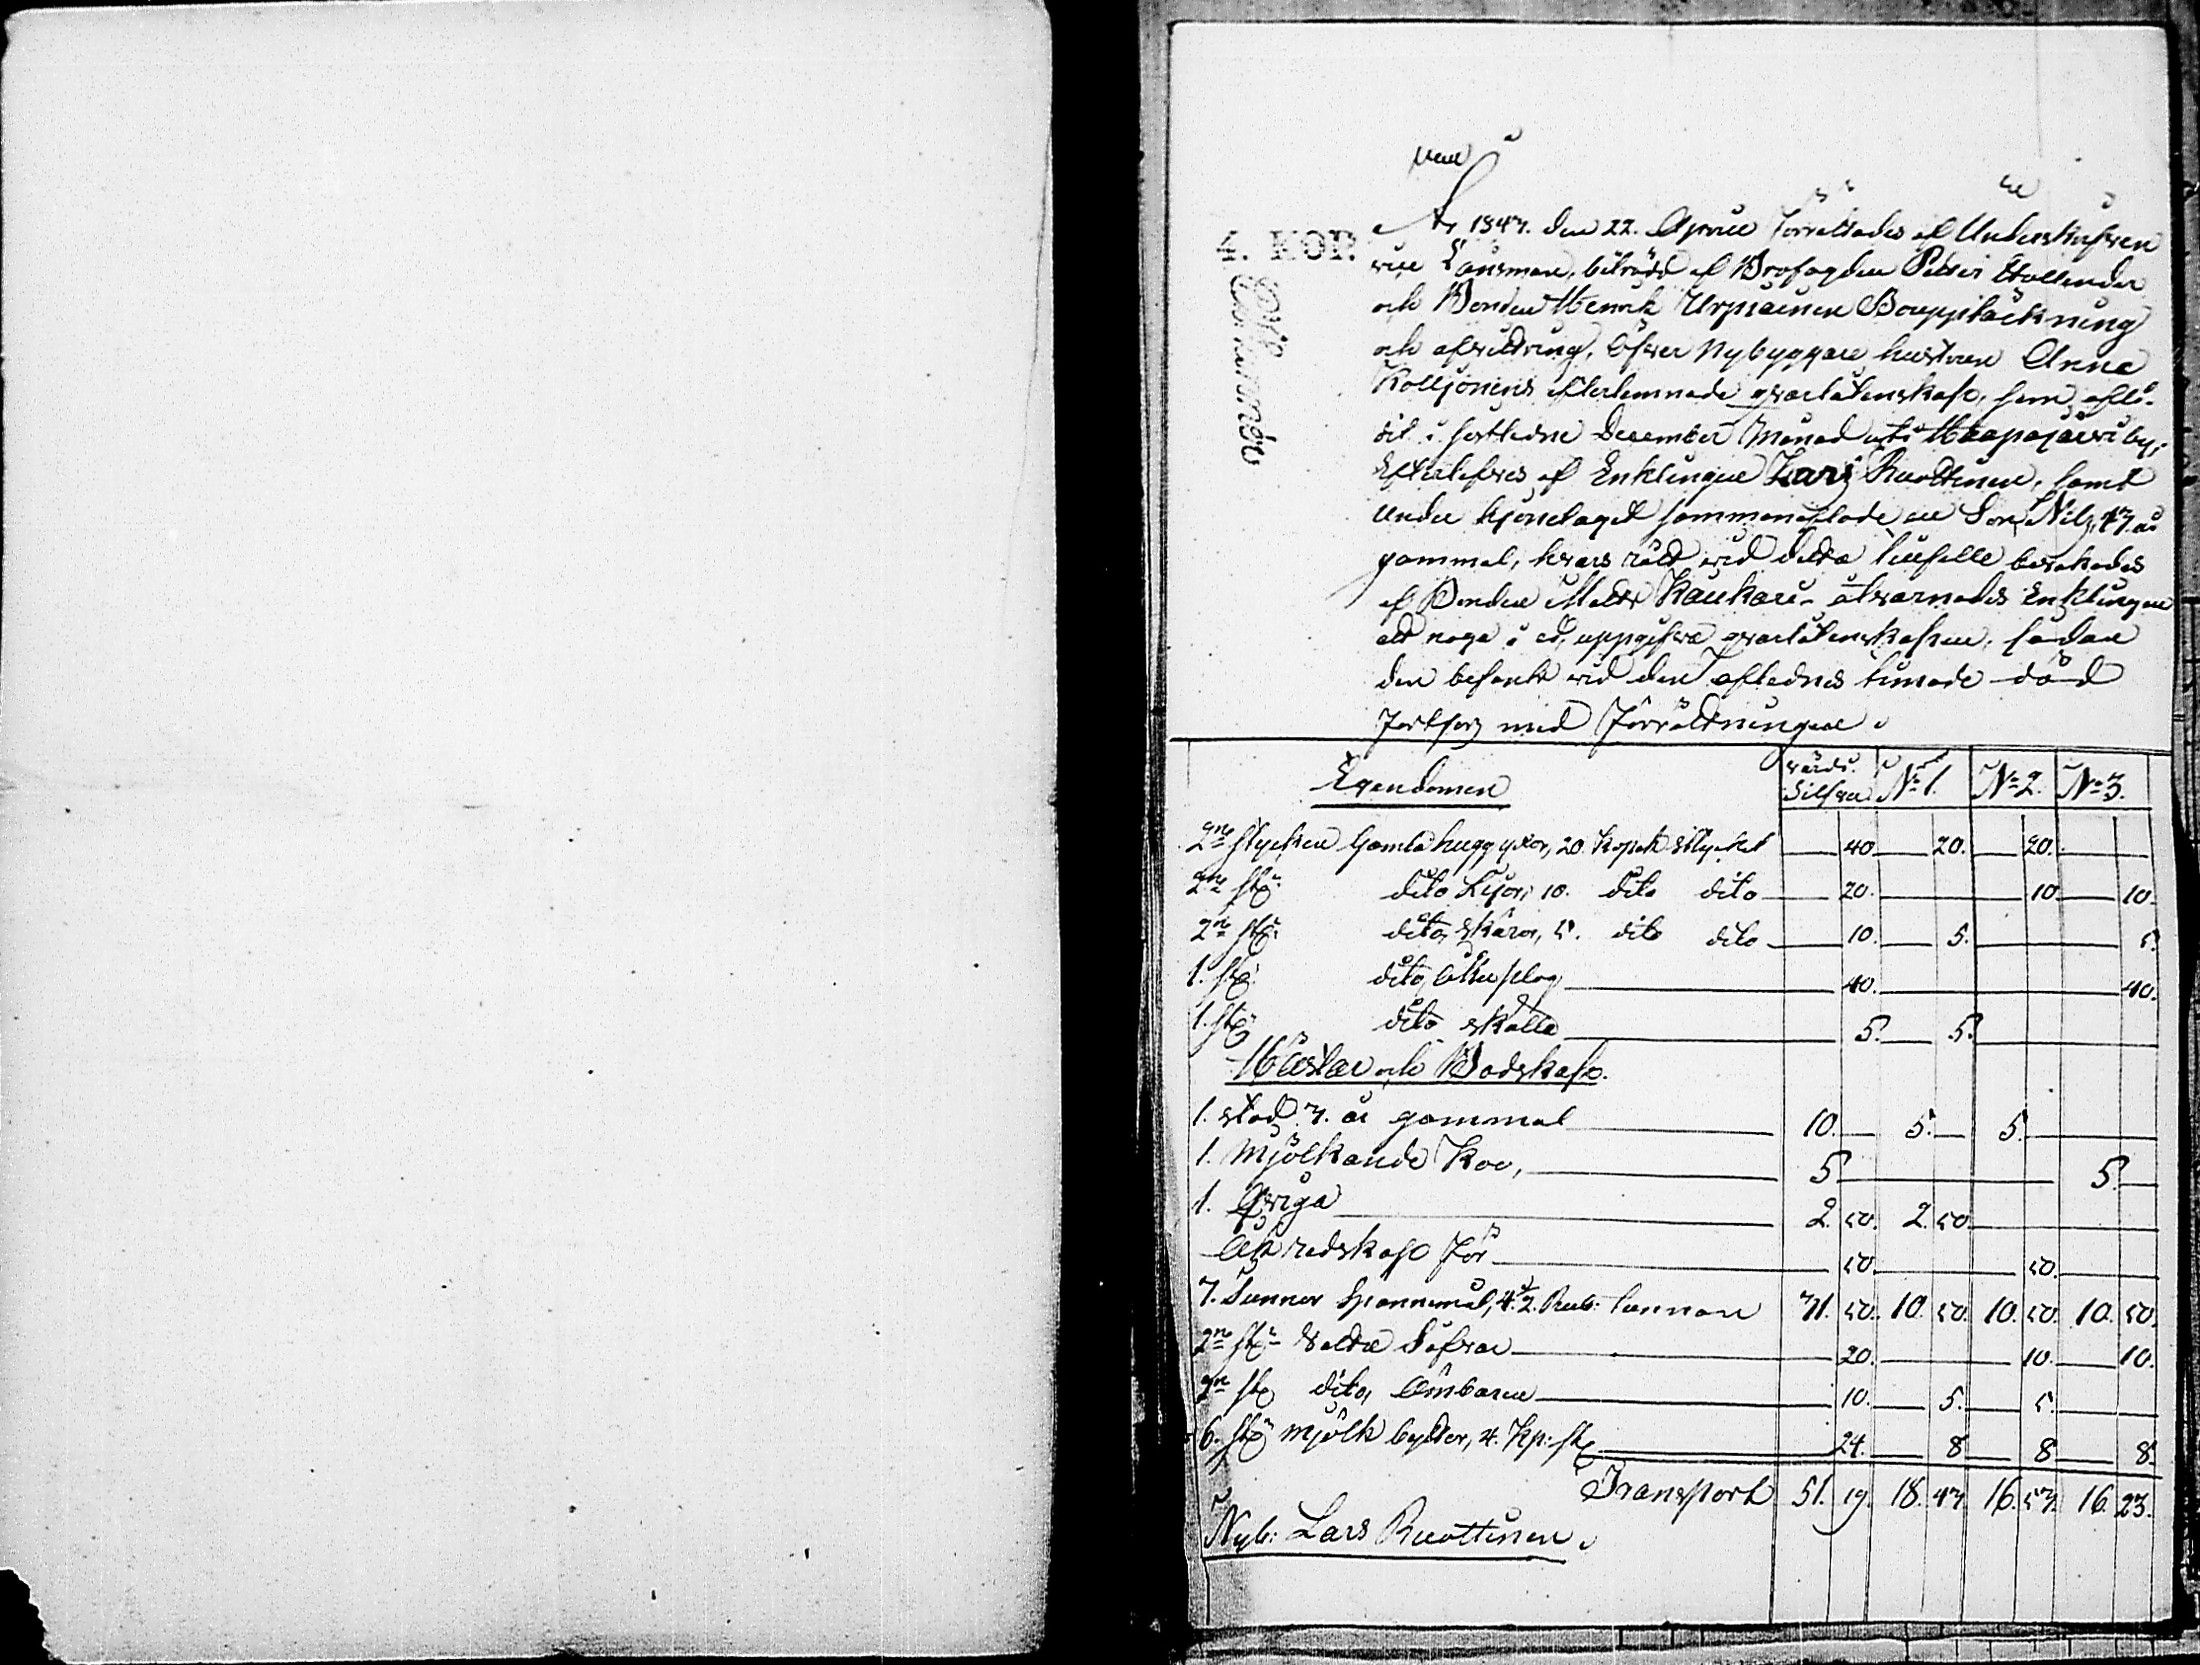 4. KOP.
År 1847. den 22. Aprill förrettades af Underskrefven
vise Länsman, biträdd af Brofogden Petter Hollender
och Bonden Henrik Urpiainen Bouppteckning
och afvittring, öfver Nybyggare hustrun Anna
Kolljonens efterlemnade qvarlåtenskap, som afle-
dit i sistledne December Månad uti Haapajärvi by,
Efterlefves af Enklingen Lars Ruottinen, samt
under hjonelaget sammanaflade en Son, Nils, 17. år
gammal, hvars rätt vid detta tillfelle bevakades
af Bonden Matts Kaukari - åtvarnades Enklingen
att noga i ed, uppgifva qvarlåtenskapen, sådan
den befants vid den aflednes timade död
fortfors med Förrättningen
Egendomen värde Silfver No 1. No 2. No 3.
2ne stycken Gamla huggyxor, 20. kopek stycket 40 20. 20.
2ne st: dito Lijor, 10. dito dito 20. 10 10.
2ne st: dito, skäror, 5. dito dito 10. 5. 5.
1. st: dito, åkerplog 40. 40.
1. st: dito skälla 5. 5.
Hästar och Bodskap.
1. stod 7. år gammal 10. 5. 5.
1. Mjölkande Koo, 5 5.
1. Qviga 2. 50. 2. 50
Åkredskap för 50. 50.
7. Tunnor Spannemål, 4 1/2. Rub: tunnan 31. 50. 10. 50. 10. 50. 10. 50.
2ne st: Valda Såfvar 20. 10. 10.
2ne st: dito, Ämbaren 10. 5. 5.
6. st: mjölk byttor, 4. Kp: st: 24. 8 8 8.
Transport 51. 19. 18. 43 16. 53. 16. 23.
Nyb: Lars Ruottinen